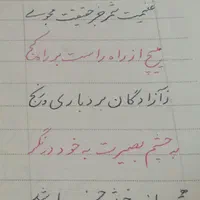 غنیمت شمر جز حقیقت مجوی
مپیچ از راه راست بر راه کج
ز آزادگان بردباری و
به چشم بصیرت به خود در نگر